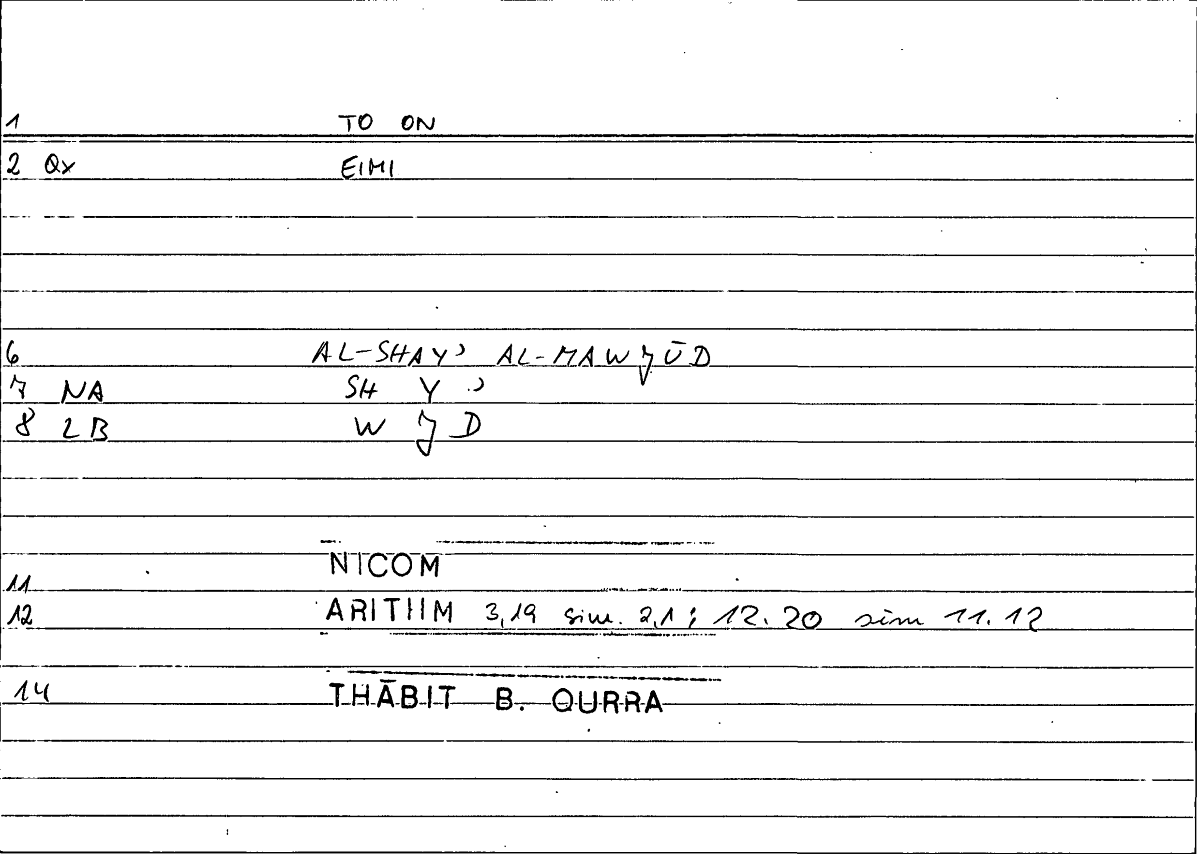 1 TO ON
2 Qx EIMI
6 AL-SHAYʾ AL-MAWJŪD
7 NA SH Y ʾ
8 2B W J D
NICOM
11
12 ARITIIM 3,19 sim. 2,1; 12.20 sim 11.12
14 THĀBIT B. QURRA